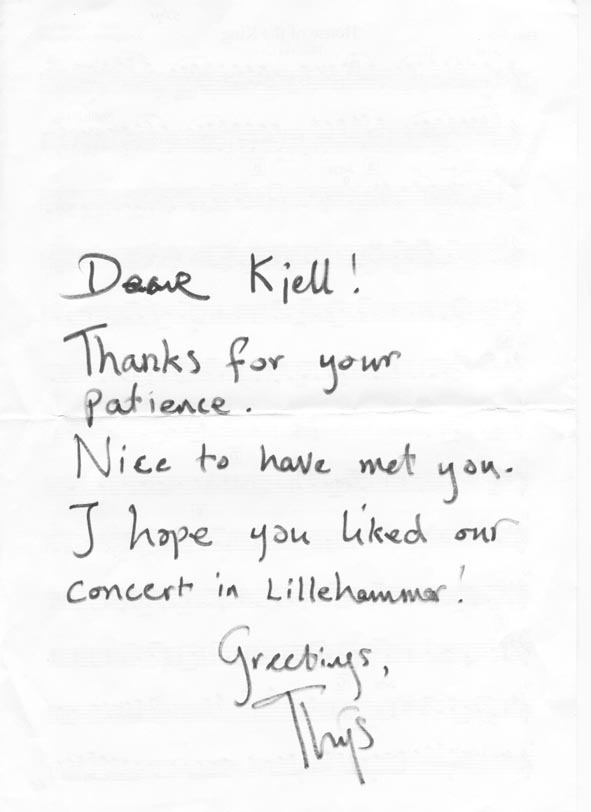 Dear Kjell!
Thanks for your
patience.
Nice to have met you.
I hope you liked our
concert in Lillehammer!
Greetings,
Thijs